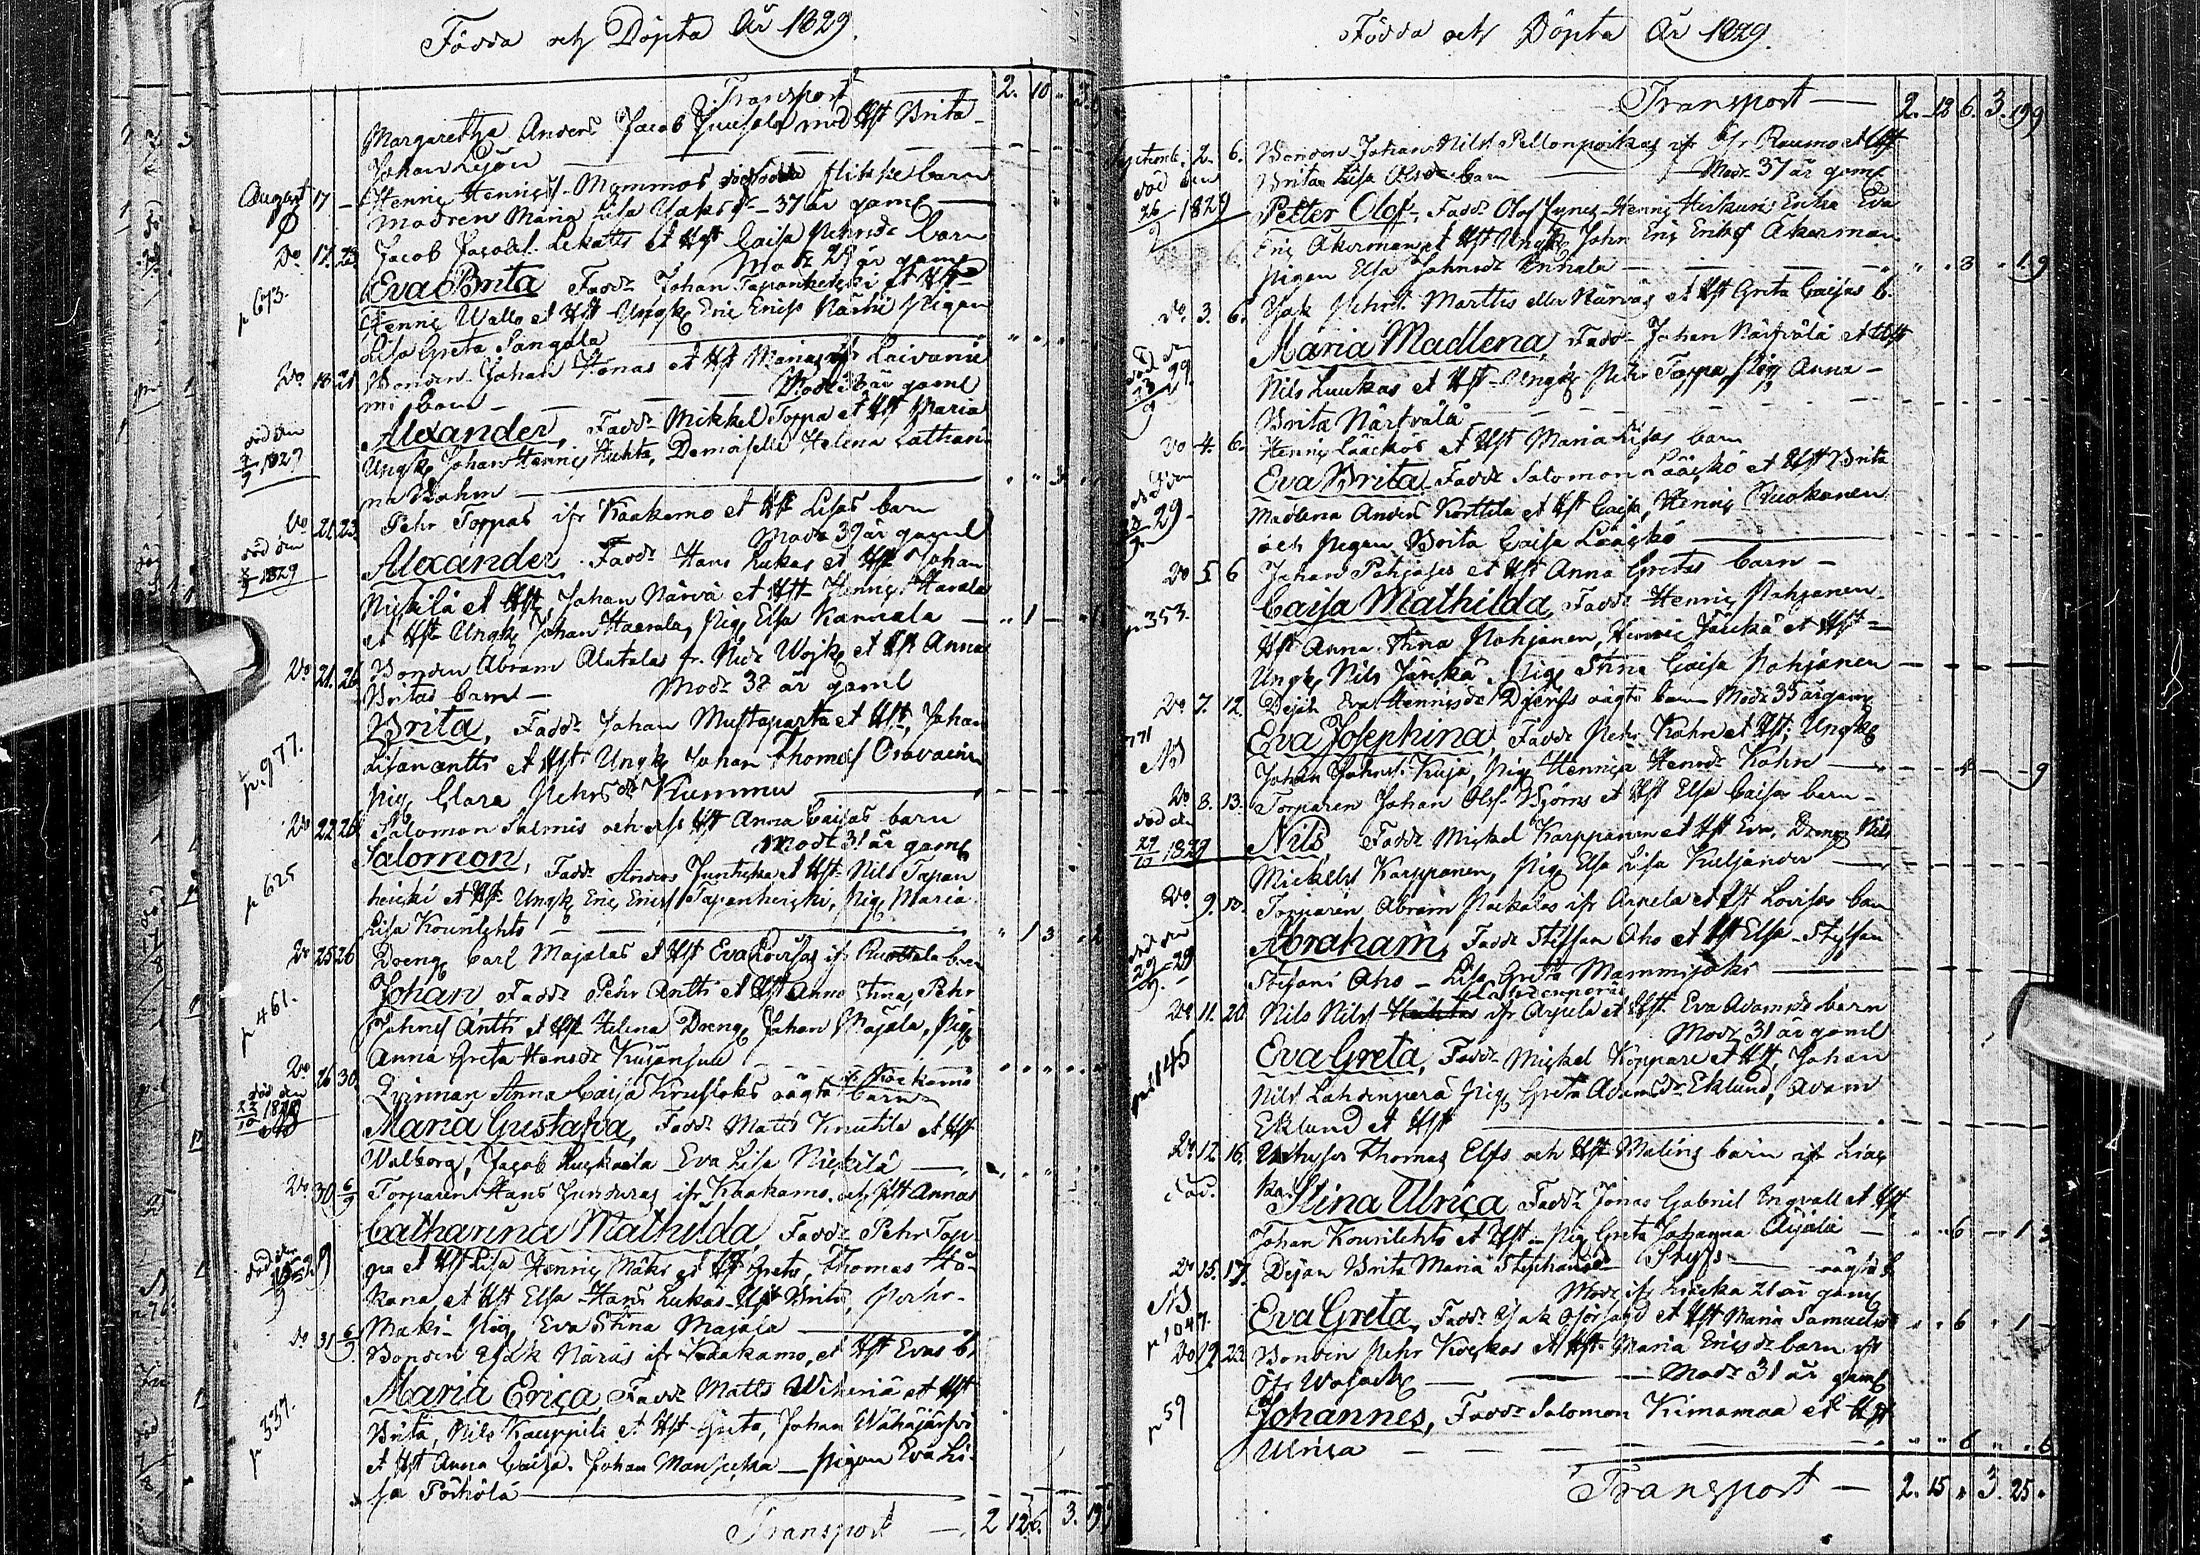 Födda och Döpta År 1829.
Transport 2. 10
Margaretha Anders Jacob Juusola med Hst Brita
Johan Lejon
August 17 Henric Henricss. Mommos flickebarn
modren Maria Lisa Isaksdr 37 år gaml
Do 17. 23. Jacob Jacobss. Lekatts et Hst Caisa Pehrsdr barn
Modr 29 år gaml
p 673. Eva Brita Faddr Johan Tapanheicki et Hst
Henric Wallo et Hst Ungk Eric Ericss Närhi Pigan
Lisa Greta Sangala
Do 18 21 Bonden Johan Jonas et Hst Marias ifr Laivanie
mi barn Modr 38 år gaml
död den 2/9 1829 Alexander, Faddr Mikkel Toppa et Hst Maria
Ungk Johan Henric Huhta, Demoiselle Helena Cathari
na Bohm
Do 21. 23. Pehr Toppas ifr Kaakamo et Hst Lisas barn
Modr 39 år gaml
död den 1829 Alexander, Faddr Hans Lukas et Hst Johan
Nickilä et Hst Johan Närvä et Hst Henric Havela
et Hst Ungk Johan Haarala, Pig Elsa Kannala
Do 21. 26 Bonden Abram Alatalos fr. Nedr Wojk et Hst Anna
Britas barn Modr 38 år gaml
p. 977. Brita, Faddr Johan Mustaparta et Hst, Johan
Lisanantti et Hst Ungk Johan Thomass Oravainen
Pig Clara Pehrsdr Kummu
Do 22 26 Salomon Salmis och dess Hst Anna Caisas barn
Modr 31 år gaml
p 625 Salomon, Faddr Anders Juntikka et Hst Nils Tapan
heicki et Hst Ungk Eric Ericss Tapanheicki, Pig Maria
Lisa Kourilehto
Do 25 26 Dreng Carl Majalas et Hst Eva Lovisas ifr Ruottala barn
p 461. Johan Faddr Pehr Antti et Hst Anna Stina, Pehr
Johanss Antti et Hst Helena Dreng Johan Majala, Pig
Anna Greta Hansdr Kuisansuu
Do 26 30. Qvinnan Anna Caisa Krustoks oägta barn ifr Kaakamo
död den 1829 Maria Gustafva, Faddr Matts Knutila et Hst
Walborg, Jacob Luckaila Eva Lisa Nickilä
Do 30 6/9 Torparen Hans Junduras ifr Kaakamo, och Hst Annas
Catharina Mathilda Faddr Pehr Top
pa et Hst Lisa Henric Mäki et Hst Greta, Thomas Ho
kana et Hst Elsa Hans Lukas Hst Brita, Pehr
Maki Pig Eva Stina Majala
Do 31 6/9. Bonden Isak Näräs ifr Kaakamo, et Hst Evas b.
p 337. Maria Erica, Faddr Matts Wikeriä et Hst
Brita, Nils Kauppila et Hst Greta, Johan Wähäjärfvi
et Hst Anna Caisa. Johan Mansikka Pigan Eva Li
sa Pörhölä
Transport 2 12 6. 3. 19
Födda och Döpta År 1829.
Transport 2. 12 6. 3. 19 9
Septemb. 2. 6. Bonden Johan Nilss Pellonpoikas ifr Öfr Raumo et Hst
Brita Lisa Olsdr barn Modr 37 år gaml
död den 26/9 1829 Petter Olof, Faddr Olof Henric Heikuri Ericka Eva
Eric Åkerman et Hst Ungk John Eric Ericss Åkerman
pigan Elsa Johansdr Unkala 3 1 9
Do 3. 6. Isak Pehrss. Marttis eller Närväs et Hst Greta Caisas b.
död den 23/9 29. Maria Madlena, Faddr Johan Närfvälä et Hst
Nils Luukas et Hst Ungk Pehr Toppa, Pig Anna
Brita Närfvälä
Do 4. 6. Henric Lääckös et Hst Maria Lisas barn
död den 29. Eva Brita, Faddr Salomon Lääckö et Hst Brita
Madlena Anders Korttila et Hst Caisa, Henric Ruokanen
och Pigan Brita Caisa Lääckö
Do 5. 6 Johan Pohjases et Hst Anna Gretas barn
p 353. Caisa Mathilda, Faddr Henric Pohjanen
Hst Anna Stina Pohjanen, Henric Jänkä et Hst
Ungk Nils Jänkä Pig Stina Caisa Pohjanen
Do 7. 12. Dejan Eva Henricsdr oägta barn Modr 35 år gaml
771 NB Eva Josephina, Faddr Pehr Kohn et Hst, Ungk
Johan Johanss. Kuja, Pig Henrica Hansdr Kohn 9
Do 8. 13. Torparen Johan Olss. Björns et Hst Elsa Caisas barn
död den 1829 Nils Faddr Mickel Karppanen et Hst Eva, Dreng Nils
Mickelss Karppanen, Pig Elsa Lisa Kuljander
Do 9. 13. Torparen Abram Packalas ifr Arpela et Hst Lovisas barn
död den 29/9. 29 Abraham, Faddr Steffan Aho et Hst Elsa Steffan
Stefans Aho Lisa Greta Mammijoki
Do 11. 20 Nils Nilss Lahdenperäs ifr Arpela et Hst Eva Adamsdr barn
Modr 31 år gaml
145 Eva Greta, Faddr Mickel Koppare et Hst, Johan
Nilss Lahdenperä Pig Greta Adamsdr Eklund, Adam
Eklund et Hst
Do 12. 16. Thomas Elfs och Hst Malins barn ifr Liac
ka. Stina Ulrica Faddr Jonas Gabriel Engvall et Hst
Johan Kourilehto et Hst Pig Greta Johanna Aijälä 6 1 3
Do 15. 17. Dejan Brita Maria Stephansdr oägta b.
Modr ifr Liacka 21 år gaml
NB p 1047. Eva Greta, Faddr Isak et Hst Maria Samuelsdr 6 1
Do 19 23 Bonden Pehr Koskos et Hst Maria Ericsdr barn ifr
Öfr Wojack Modr 31 år gaml
p 59 Johannes, Faddr Salomon Kimamaa et Hst
Ulrica 6 6
Transport 2. 15 3. 25